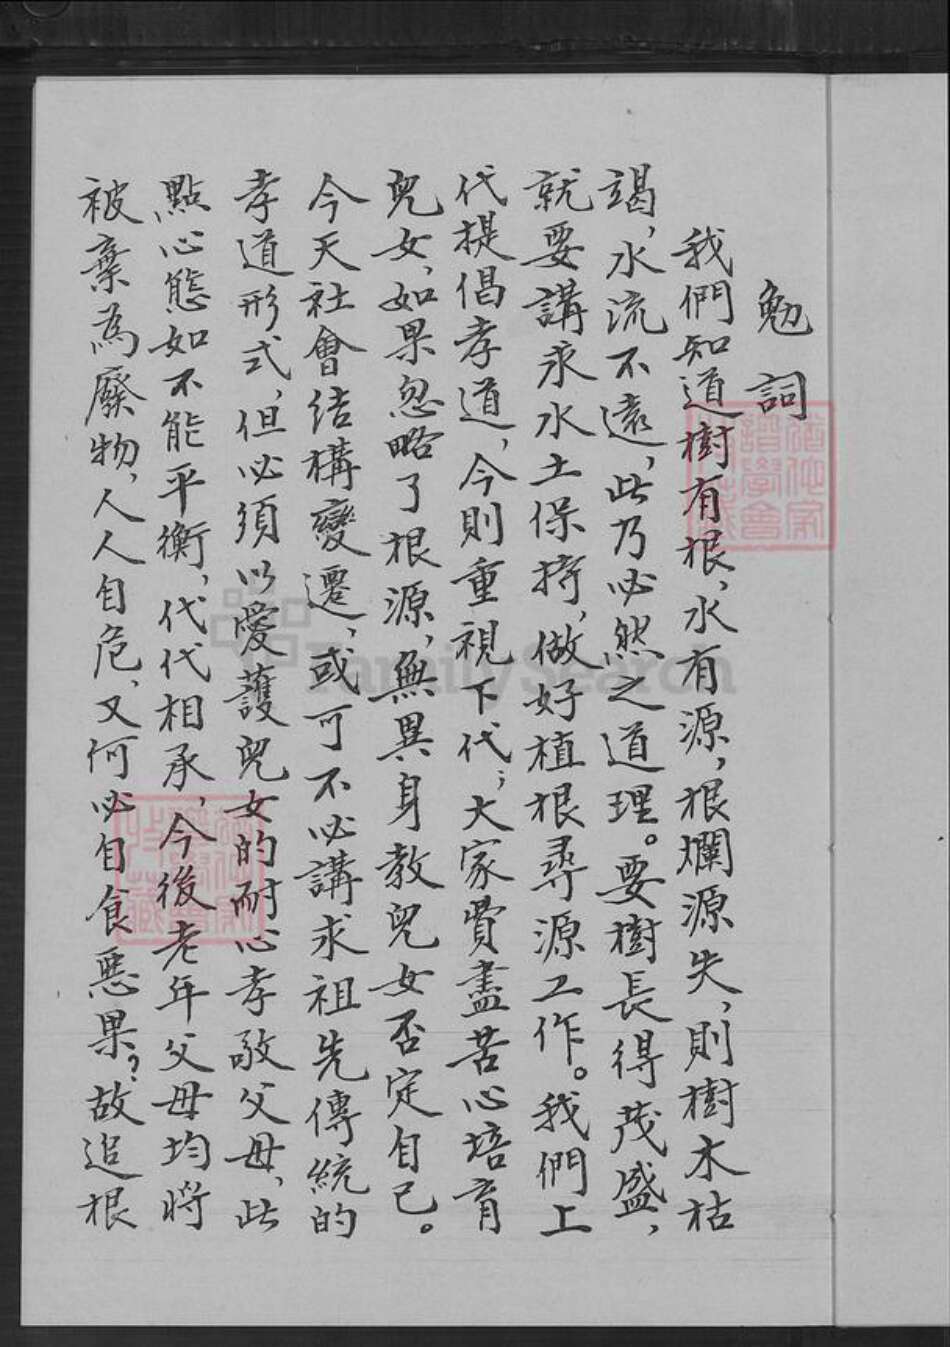 勉詞
我們知道樹有根，水有源，根爛源失，則樹木枯
竭，水流不遠，此乃必然之道理。要樹長得茂盛，
就要講求水土保持，做好植根尋源工作。我們上
代提倡孝道，今則重視下代，大家費盡苦心培育
兒女，如果忽略了根源，無異身教兒女否定自己。
今天社會结構變遷，或可不必講求祖先傳統的
孝道形式，但必須以愛護兒女的耐心孝敬父母，此
點心態如不能平衡，代代相承，今後老年父母均將
被棄為廢物，人人自危，又何必自食惡果？故追根
FamilySearch